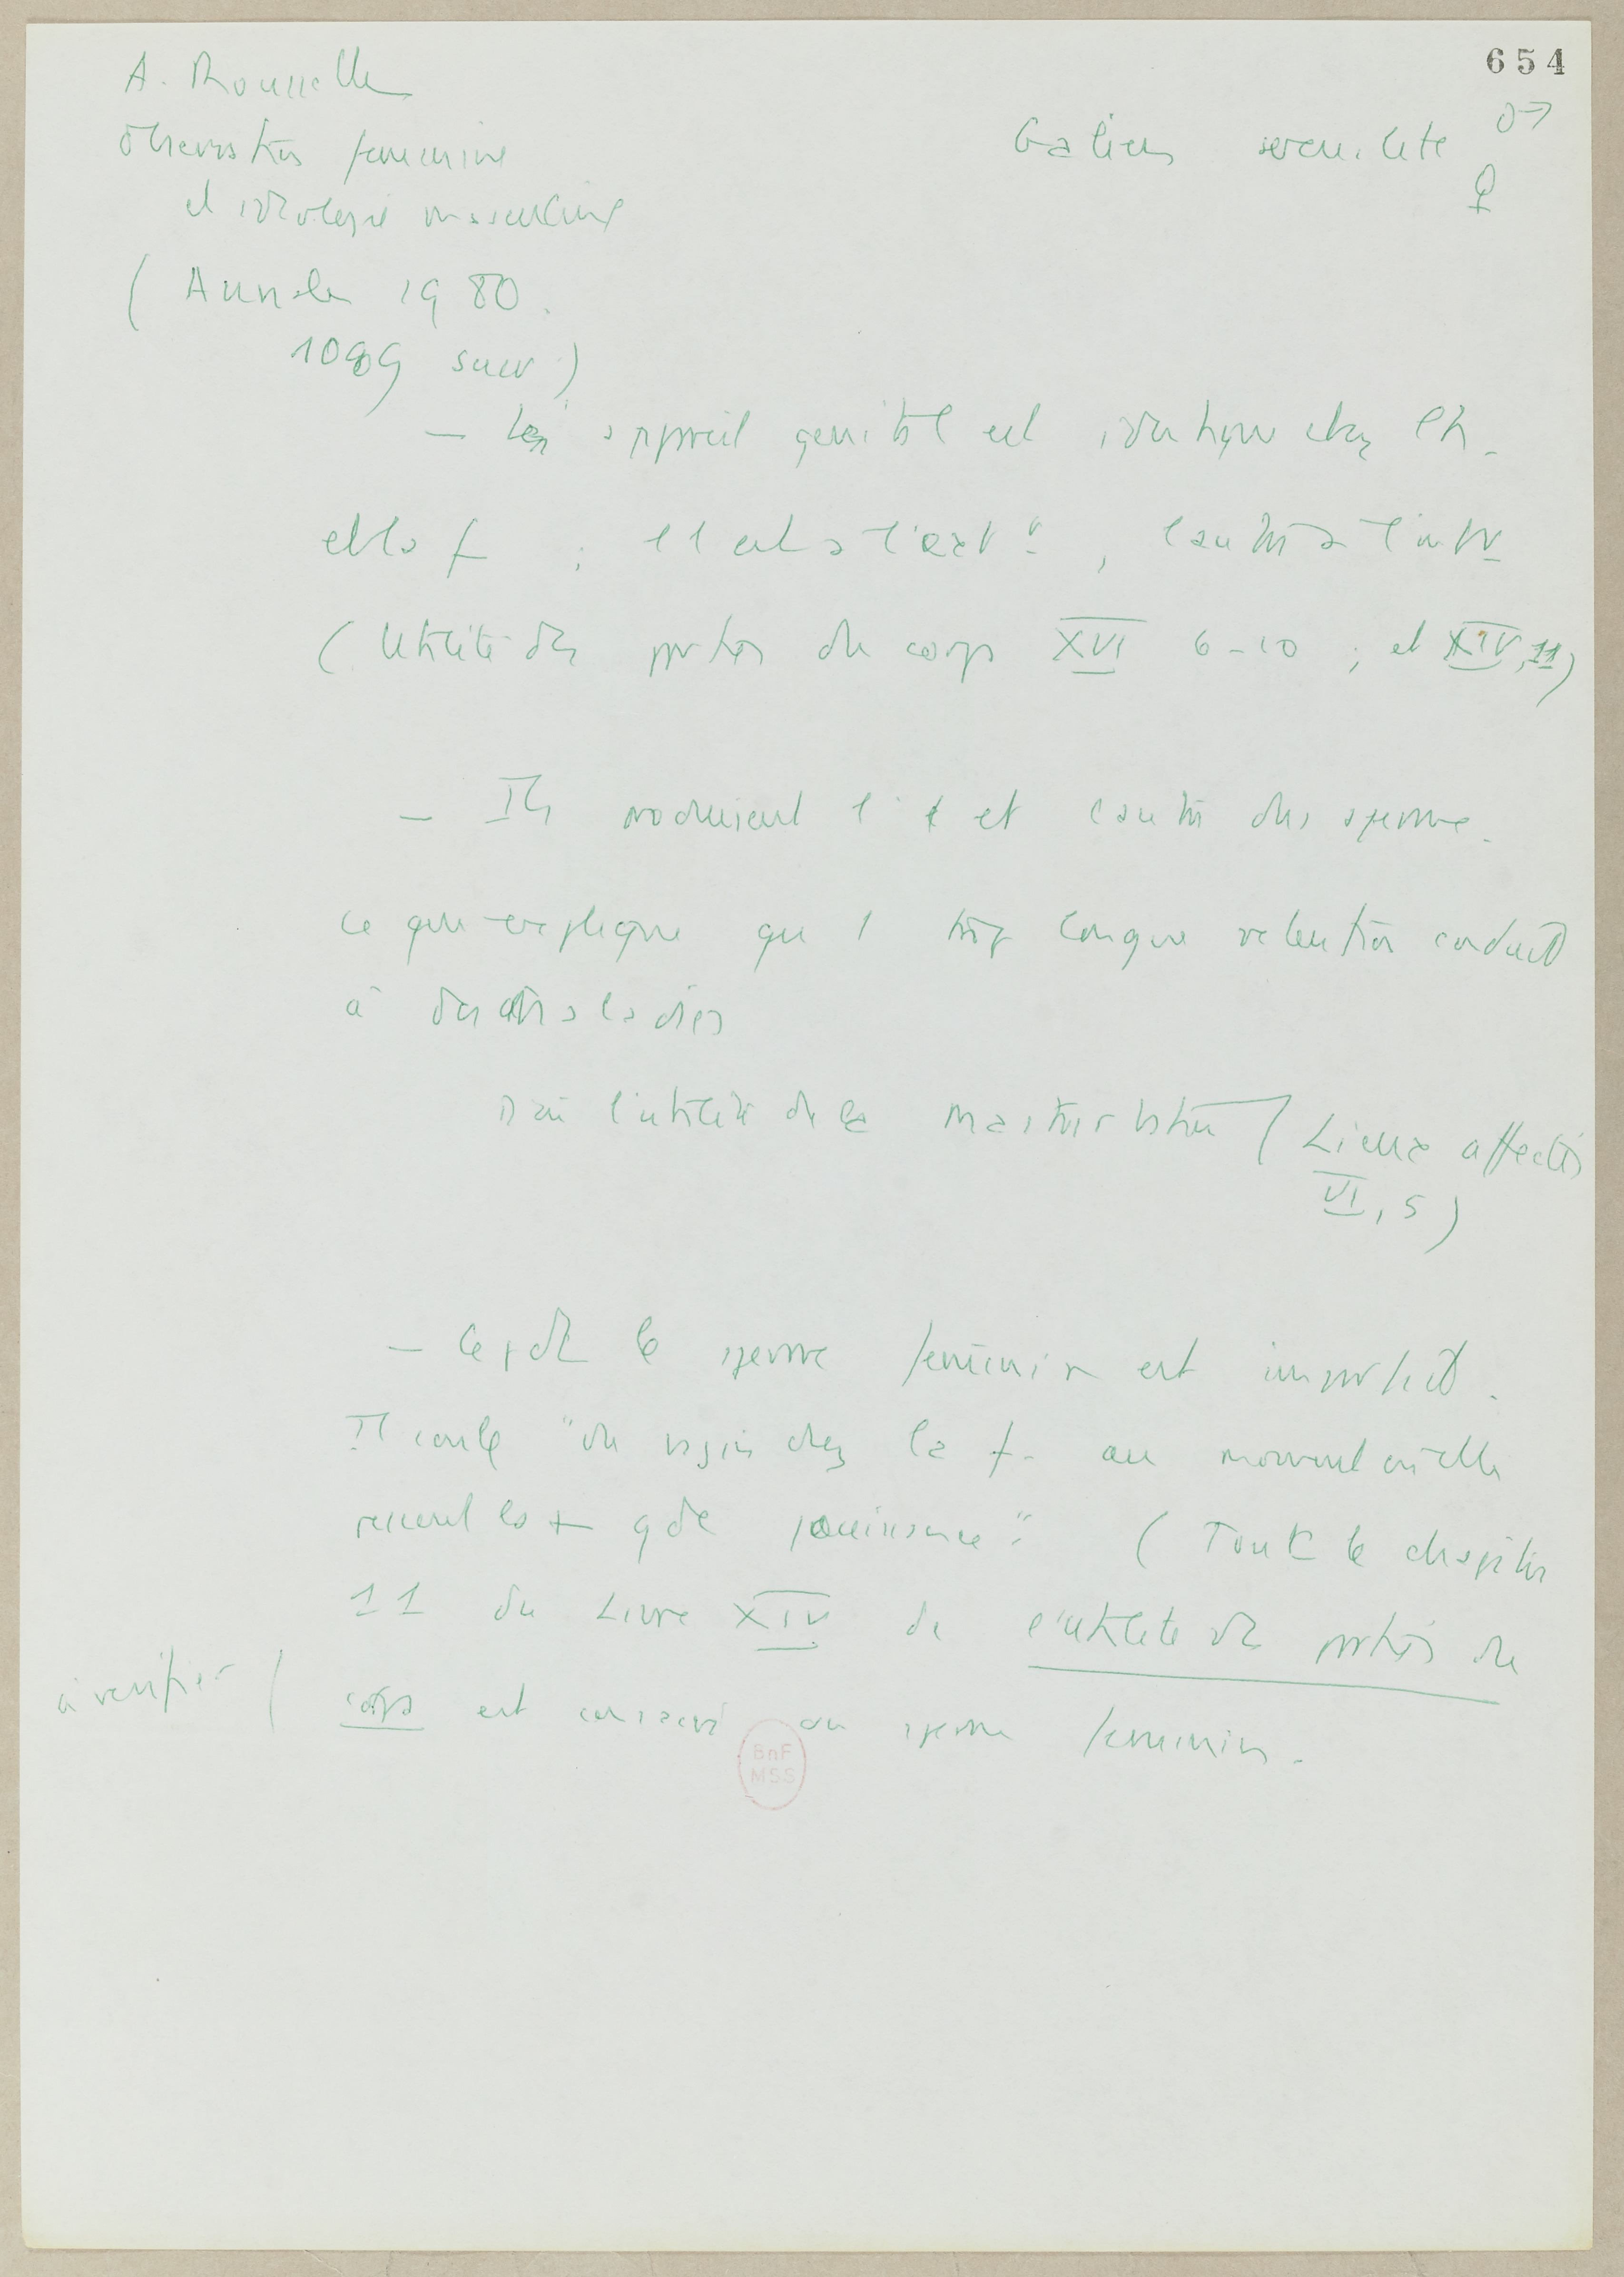 654
A. Rousselle
Observation féminine
et idéologie masculine
(Annales 1980.
1089 suiv)
Galien sexualité ♂
♀
— Les appareil génital est identique chez l'h.
et la f ; l'1 est à l'extr , l'autre à l'intr
(Utilité des parties du corps XVI 6-10 ; et XIV, 11)
— Ils produisent l'1 et l'autre du sperme.
ce qui explique qu' 1 trop longue rétention conduit
à des maladies
D'où l'utilité de la masturbation (Lieux affectés
VI, 5)
— Cepdt le sperme féminin est imparfait.
Il coule "du vagin chez la f. au moment où elle
ressent la + gde jouissance" (Tout le chapitre
11 du Livre XIV de l'utilité des parties du
à vérifier ( corps est consacré au sperme féminin.
BnF
MSS